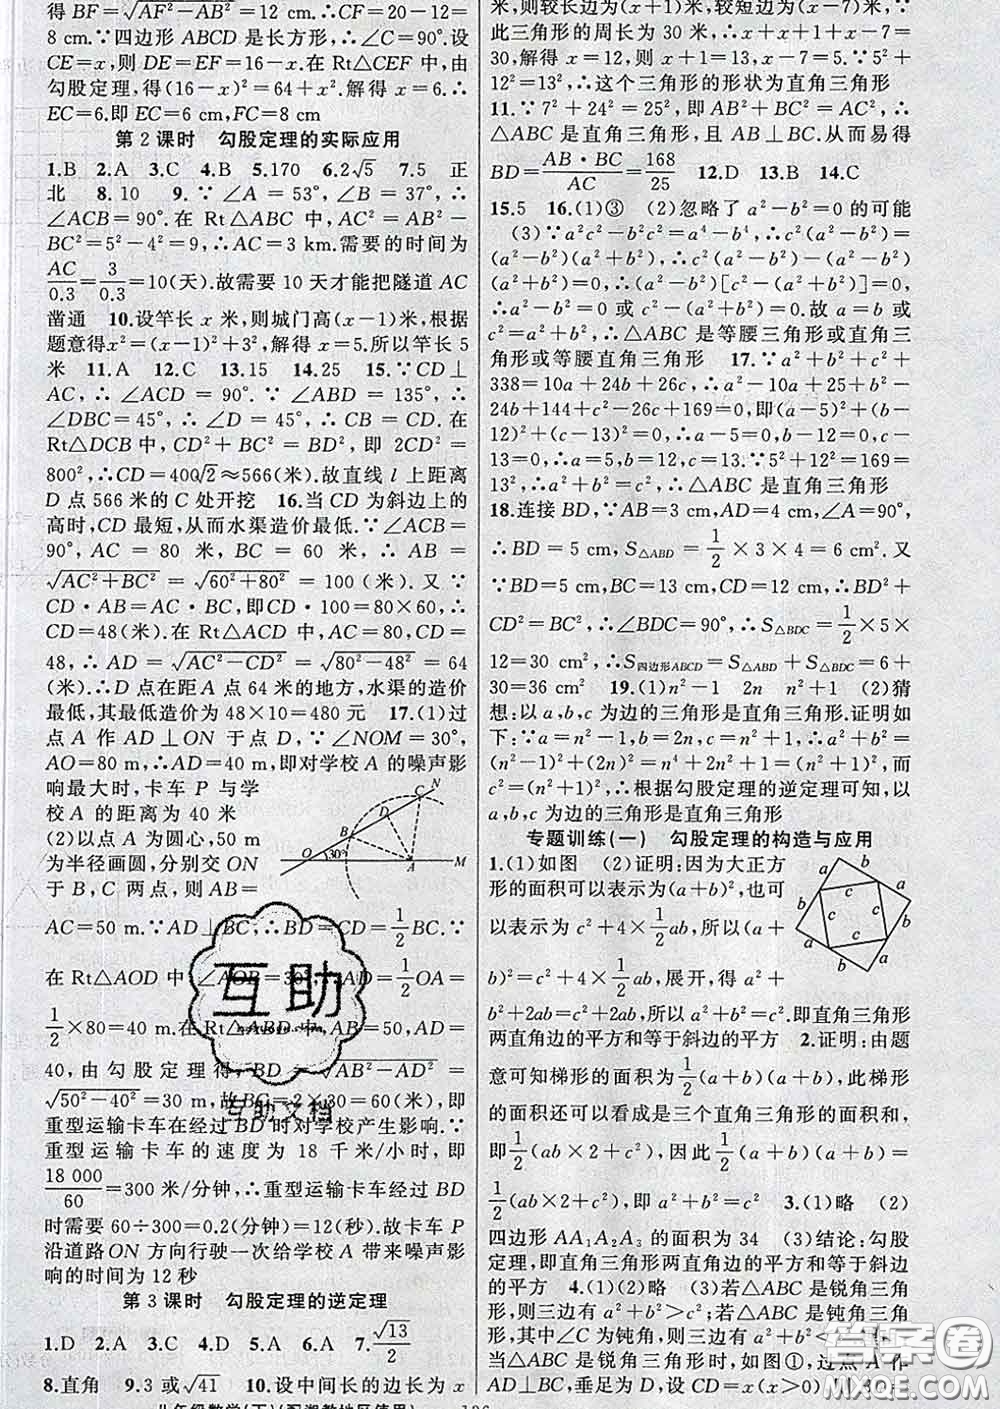 得 BF=√(AF²−AB²)=12 cm.∴CF=20−12=
8 cm.∵四边形 ABCD 是长方形,∴∠C=90°.设
CE=x,则 DE=EF=16−x.在 Rt△CEF 中,由
勾股定理,得(16−x)²=64+x².解得 x=6.∴
EC=6.即 EC=6 cm,FC=8 cm
第 2 课时 勾股定理的实际应用
1.B 2.A 3.C 4.B 5.170 6.2√5 7.5 正
北 8.10 9.∵∠A=53°,∠B=37°,∴
∠ACB=90°.在 Rt△ABC 中,AC²=AB²−
BC²=5²−4²=9,∴AC=3 km.需要的时间为
AC/0.3=3/0.3=10(天).故需要 10 天才能把隧道 AC
凿通 10.设竿长 x 米,则城门高(x−1)米,根据
题意得x²=(x−1)²+3²,解得 x=5.所以竿长 5
米 11.A 12.C 13.15 14.25 15.∵CD⊥
AC,∴∠ACD=90°.∵∠ABD=135°,∴
∠DBC=45°,∴∠D=45°,∴CB=CD.在
Rt△DCB 中,CD²+BC²=BD²,即 2CD²=
800²,∴CD=400√2≈566(米).故直线 l 上距离
D 点 566 米的 C 处开挖 16.当 CD 为斜边上的
高时,CD 最短,从而水渠造价最低.∵∠ACB=
90°,AC=80 米,BC=60 米,∴AB=
√(AC²+BC²)=√(60²+80²)=100(米).又∵
CD·AB=AC·BC,即CD·100=80×60,∴
CD=48(米).在 Rt△ACD 中,AC=80,CD=
48,∴AD=√(AC²−CD²)=√(80²−48²)=64
(米).∴D 点在距A 点 64 米的地方,水渠的造价
最低,其最低造价为 48×10=480 元 17.(1)过
点 A 作 AD⊥ON 于点 D,∵∠NOM=30°,
AO=80 m,∴AD=40 m,即对学校 A 的噪声影
响最大时,卡车 P 与学
校 A 的距离为 40 米
(2)以点 A 为圆心,50 m
为半径画圆,分别交 ON
于 B,C 两点,则 AB=
AC=50 m.∵AD⊥BC,∴BD=CD=1/2BC.∵
在 Rt△AOD 中,∠AOB=30°,∴AD=1/2OA=
1/2×80=40 m.在 Rt△ABD 中,AB=50,AD=
40,由勾股定理得,BD=√(AB²−AD²)=
√(50²−40²)=30 m,故BC=2×30=60 米,即
重型运输卡车在经过 BD 时对学校产生影响.∵
重型运输卡车的速度为 18 千米/小时,即
18 000/60=300 米/分钟,∴重型运输卡车经过 BD
时需要 60÷300=0.2(分钟)=12(秒).故卡车 P
沿道路ON 方向行驶一次给学校 A 带来噪声影
响的时间为 12 秒
第 3 课时 勾股定理的逆定理
1.D 2.A 3.C 4.D 5.A 6.A 7.√13/2
8.直角 9.3 或√41 10.设中间长的边长为 x
O 30° A M B D C N
米,则较长边为(x+1)米,较短边为(x−7)米,∵
此三角形的周长为 30 米,∴x+x+1+x−7=
30,解得 x=12,∴x+1=13,x−7=5.∵5²+
12²=13²,∴这个三角形的形状为直角三角形
11.∵7²+24²=25²,即 AB²+BC²=AC²,∴
△ABC 是直角三角形,且 AB⊥BC.从而易得
BD=AB·BC/AC=168/25 12.D 13.B 14.C
15.5 16.(1)③ (2)忽略了 a²−b²=0 的可能
(3)∵a²c²−b²c²=a⁴−b⁴,∴c²(a²−b²)=
(a²−b²)(a²+b²),∴c²(a²−b²)−(a²−b²)
(a²+b²)=0,∴(a²−b²)[c²−(a²+b²)]=0,
∴a²−b²=0 或 c²−(a²+b²)=0.故 a=b 或
c²=a²+b²,∴△ABC 是等腰三角形或直角三
角形或等腰直角三角形 17.∵a²+b²+c²+
338=10a+24b+26c,∴a²−10a+25+b²−
24b+144+c²−26c+169=0,即(a−5)²+(b−
12)²+(c−13)²=0,∴a−5=0,b−12=0,c−
13=0.∴a=5,b=12,c=13.∵5²+12²=169=
13²,∴a²+b²=c²,∴△ABC 是直角三角形
18.连接 BD,∵AB=3 cm,AD=4 cm,∠A=90°,
∴BD=5 cm,S△ABD=1/2×3×4=6 cm².又
∵BD=5 cm,BC=13 cm,CD=12 cm,∴BD²+
CD²=BC²,∴∠BDC=90°,∴S△BDC=1/2×5×
12=30 cm²,∴S四边形ABCD=S△ABD+S△BDC=6+
30=36 cm² 19.(1)n²−1 2n n²+1 (2)猜
想:以 a,b,c 为边的三角形是直角三角形.证明如
下:∵a=n²−1,b=2n,c=n²+1,∴a²+b²=
(n²−1)²+(2n)²=n⁴+2n²+1=(n²+1)².而
c²=(n²+1)²,∴根据勾股定理的逆定理可知,以
a,b,c 为边的三角形是直角三角形
专题训练(一) 勾股定理的构造与应用
1.(1)如图 (2)证明:因为大正方
形的面积可以表示为(a+b)²,也可
以表示为 c²+4×1/2ab,所以(a+
b)²=c²+4×1/2ab,展开,得 a²+
b²+2ab=c²+2ab,所以 a²+b²=c².即直角三角形
两直角边的平方和等于斜边的平方 2.证明:由题
意可知梯形的面积为1/2(a+b)(a+b),此梯形
的面积还可以看成是三个直角三角形的面积和,
即1/2(ab×2+c²).因此1/2(a+b)(a+b)=
1/2(ab×2+c²),即 a²+b²=c² 3.(1)略 (2)
四边形 AA₁A₂A₃ 的面积为 34 (3)结论:勾股
定理,即直角三角形两直角边的平方和等于斜边
的平方 4.(1)(2)略 (3)若△ABC 是锐角三角
形,则三边有 a²+b²>c²;若△ABC 是钝角三角
形,其中∠C 为钝角,则三边有 a²+b²<
当△ABC 是锐角三角形时,如图①,过点 A 作
AD⊥BC,垂足为 D,设 CD=x(x>0),则
a b c
互助
互助文档
答案圈
八年级数学(下)(配湘教地区使用)